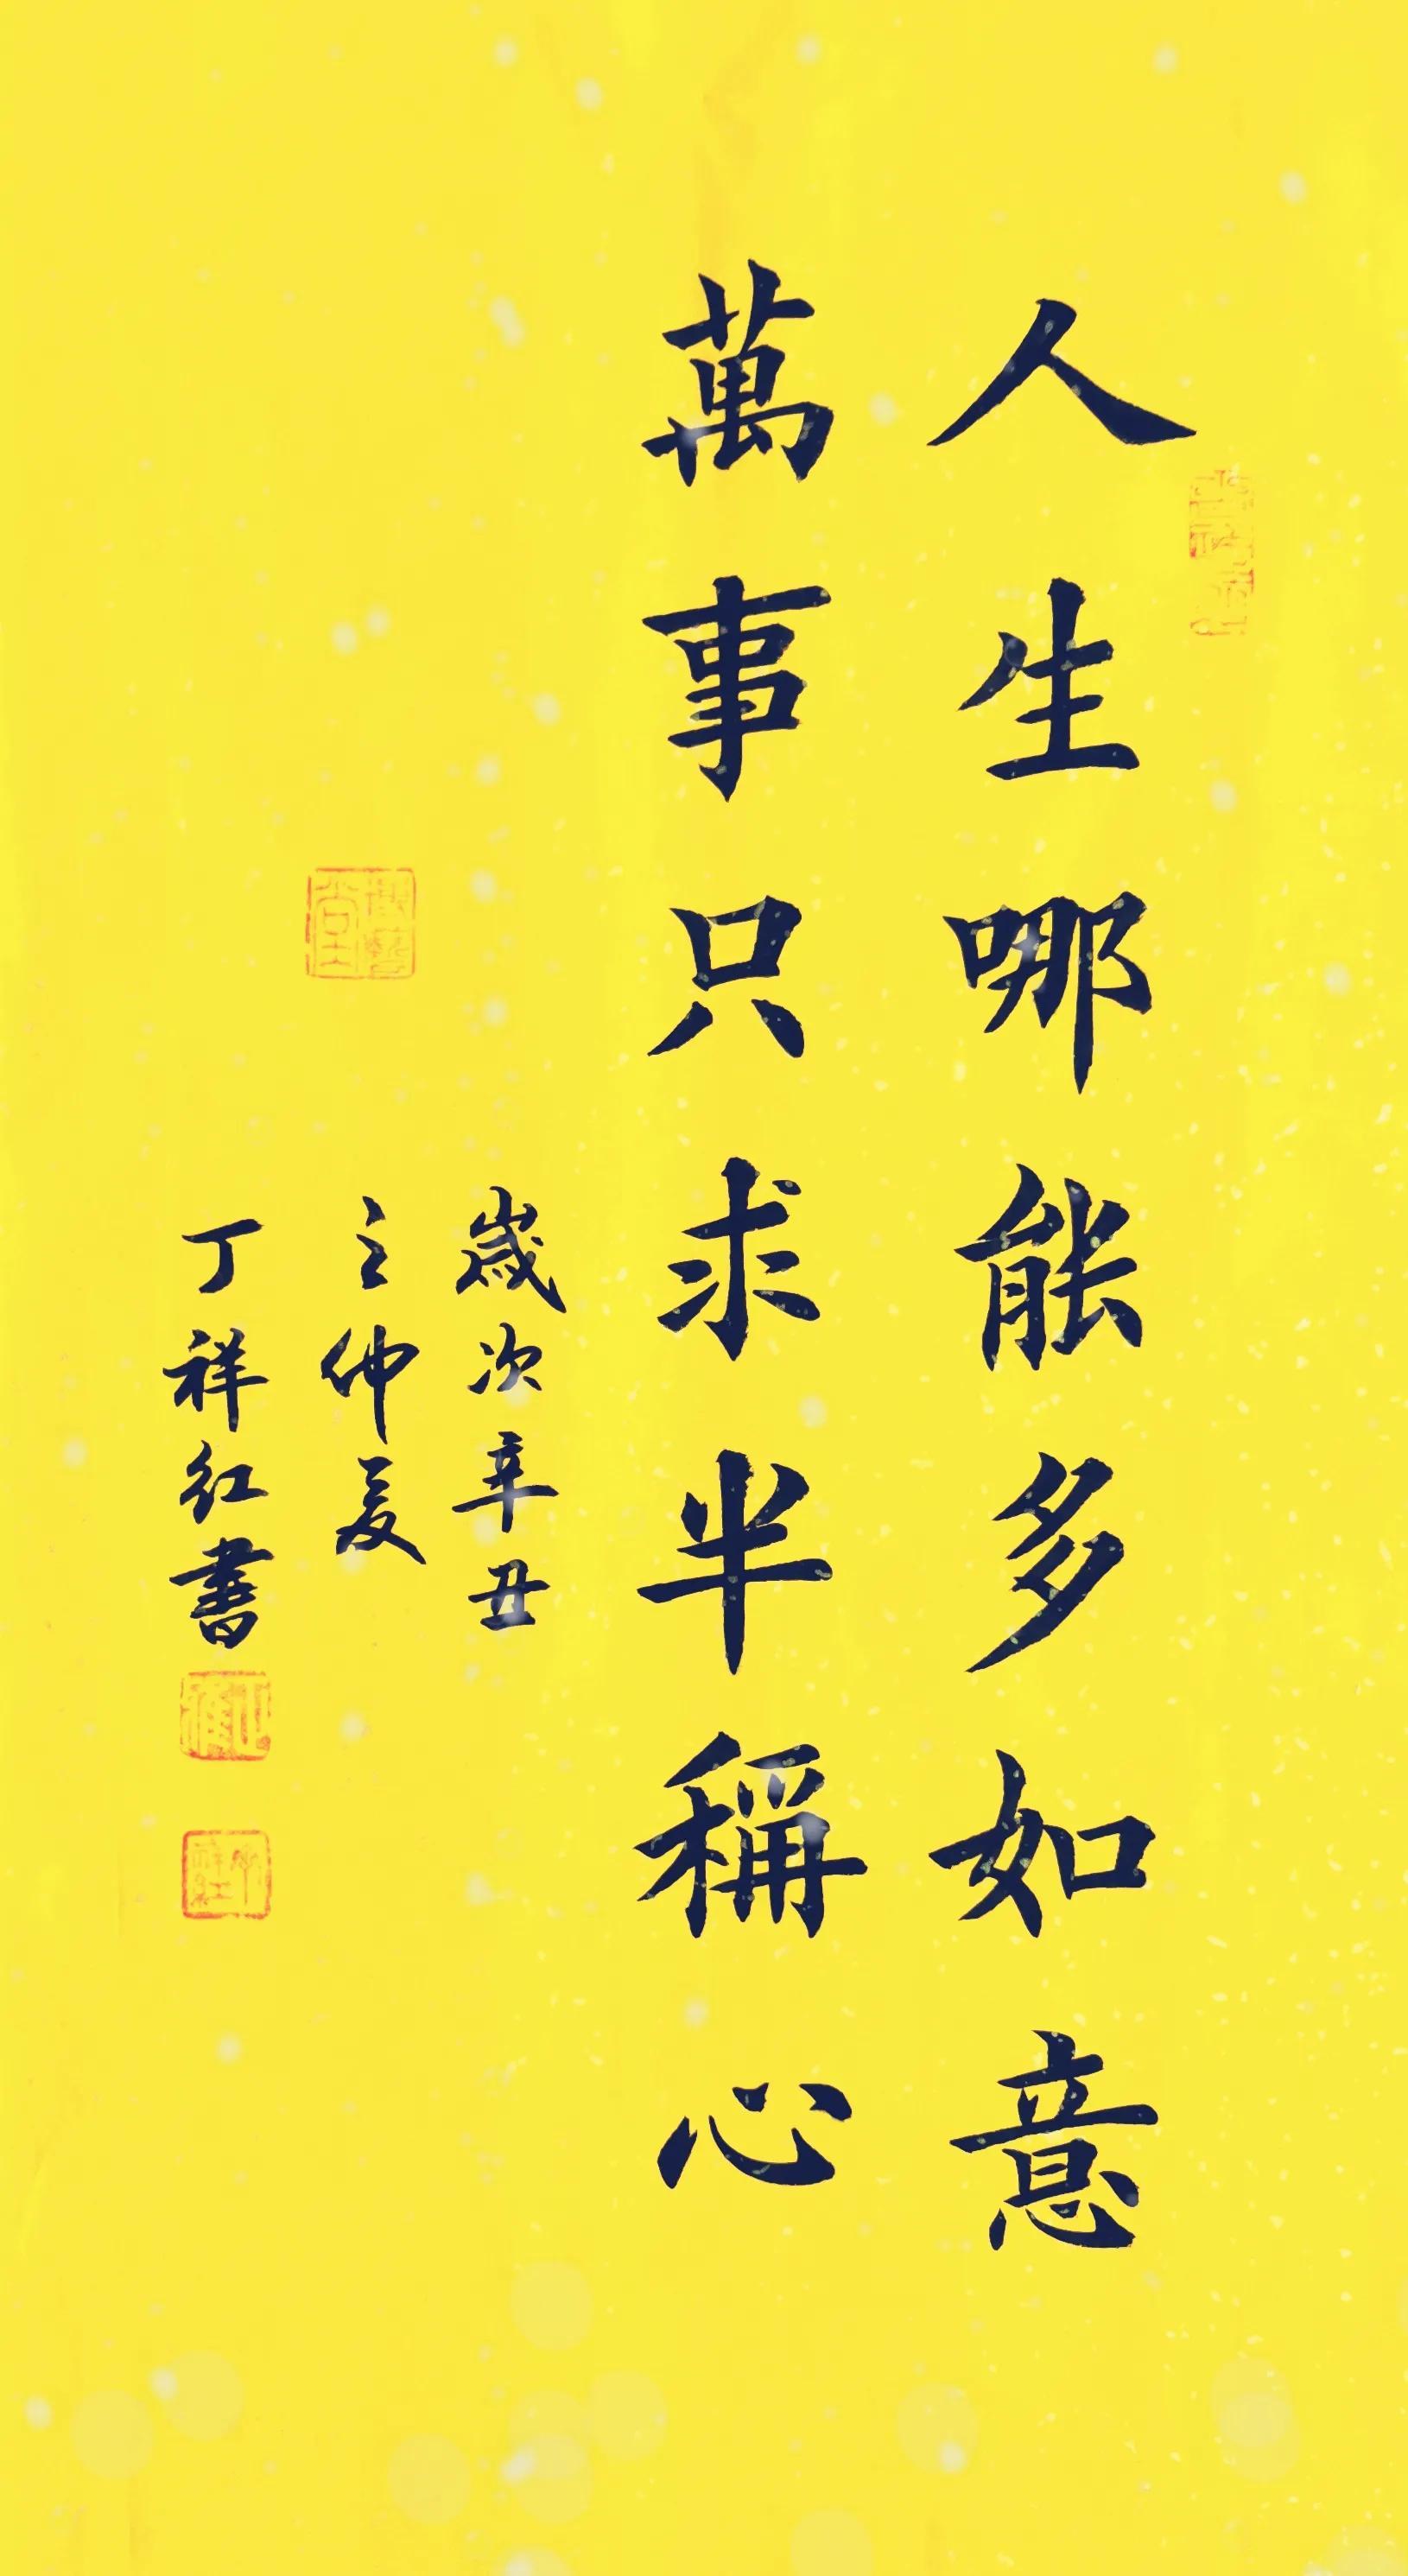 人生哪能多如意
萬事只求半稱心
歲次辛丑
之仲夏
丁祥红書